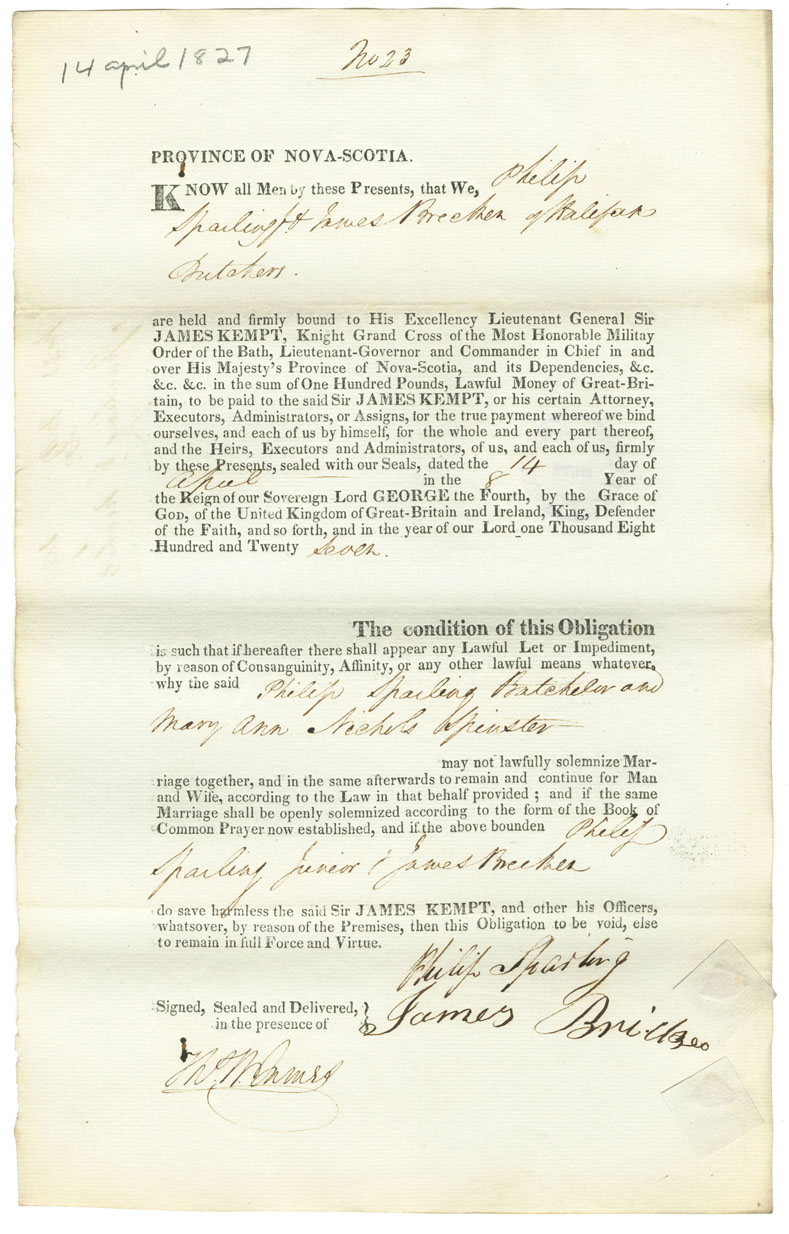 14 april 1827
No 23
PROVINCE OF NOVA-SCOTIA.
KNOW all Men by these Presents, that We, Philip
Sparling & James Brecken of Halifax
Butchers.
are held and firmly bound to His Excellency Lieutenant General Sir
JAMES KEMPT, Knight Grand Cross of the Most Honorable Militay
Order of the Bath, Lieutenant-Governor and Commander in Chief in and
over His Majesty's Province of Nova-Scotia, and its Dependencies, &c.
&c. &c. in the sum of One Hundred Pounds, Lawful Money of Great-Bri-
tain, to be paid to the said Sir JAMES KEMPT, or his certain Attorney,
Executors, Administrators, or Assigns, for the true payment whereof we bind
ourselves, and each of us by himself, for the whole and every part thereof,
and the Heirs, Executors and Administrators, of us, and each of us, firmly
by these Presents, sealed with our Seals, dated the 14 day of
April in the 8 Year of
the Reign of our Sovereign Lord GEORGE the Fourth, by the Grace of
GOD, of the United Kingdom of Great-Britain and Ireland, King, Defender
of the Faith, and so forth, and in the year of our Lord one Thousand Eight
Hundred and Twenty Seven.
The condition of this Obligation
is such that if hereafter there shall appear any Lawful Let or Impediment,
by reason of Consanguinity, Affinity, or any other lawful means whatever,
why the said Philip Sparling Batchelor and
Mary Ann Nichols Spinster
may not lawfully solemnize Mar-
riage together, and in the same afterwards to remain and continue for Man
and Wife, according to the Law in that behalf provided ; and if the same
Marriage shall be openly solemnized according to the form of the Book of
Common Prayer now established, and if the above bounden Philip
Sparling Junior & James Brecken
do save harmless the said Sir JAMES KEMPT, and other his Officers,
whatsover, by reason of the Premises, then this Obligation to be void, else
to remain in full Force and Virtue.
Philip Sparling
Signed, Sealed and Delivered,
in the presence of
James